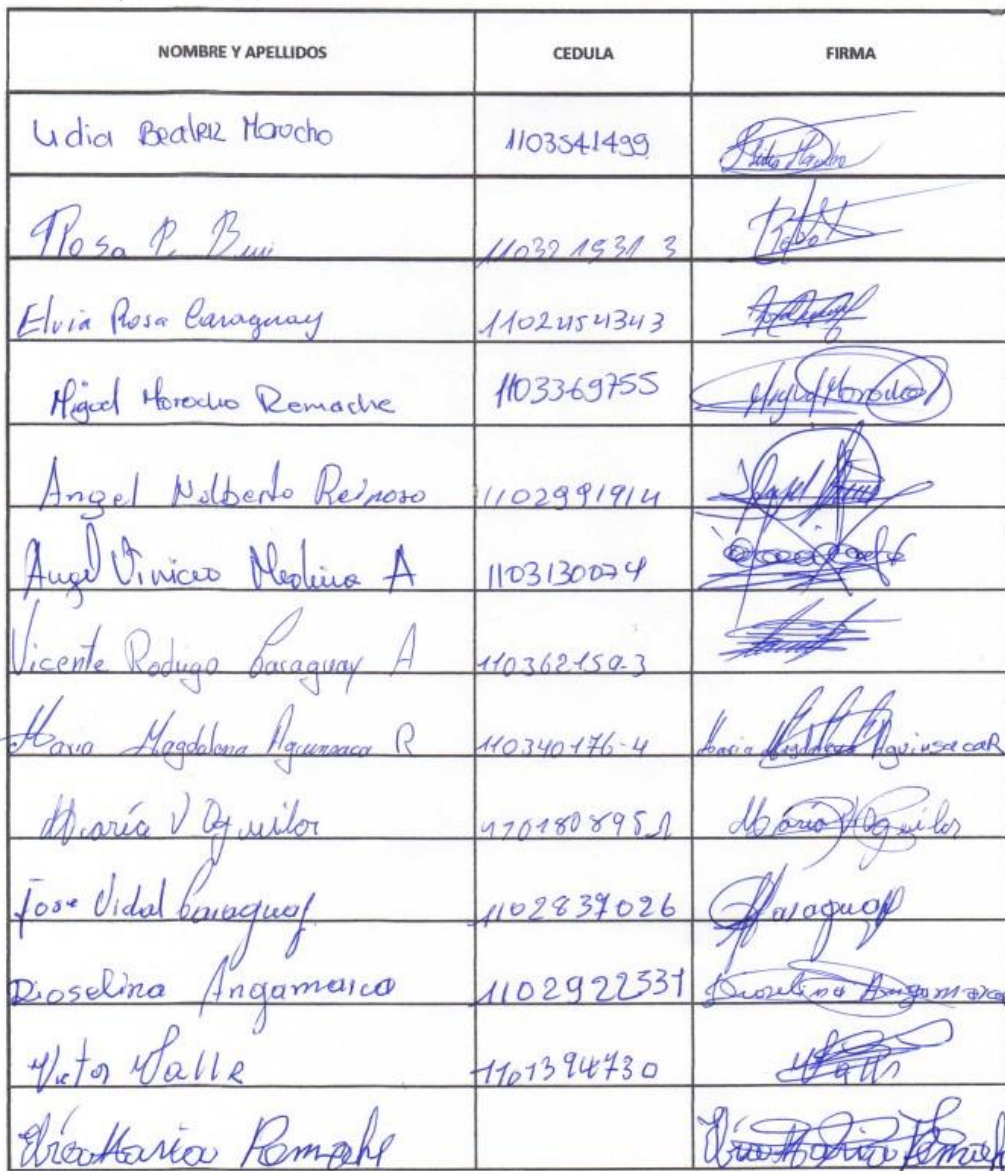 NOMBRE Y APELLIDOS CEDULA FIRMA
Lidia Beatriz Morocho 1103541499
Rosa P. 110321931 3
Elvia Rosa Caraguay 1102454343
Miguel Morocho Remache 1103369755 Miguel Morocho
Angel Nolberto Reinoso 1102991914 Angel
Angel Vinicio Medina A 1103130074
Vicente Rodrigo Caraguay A 110362159-3
Maria Magdalena Aguinsaca R 110340176-4 Maria Magdalena Aguinsaca R
María V Aguilar 170180895 1 María V Aguilar
Jose Vidal Caraguay 1102837026 Caraguay
Rioselina Angamarca 1102922331 Rioselina Angamarca
Victor Valle 1101394730 Valle
Maria Remache Maria Remache